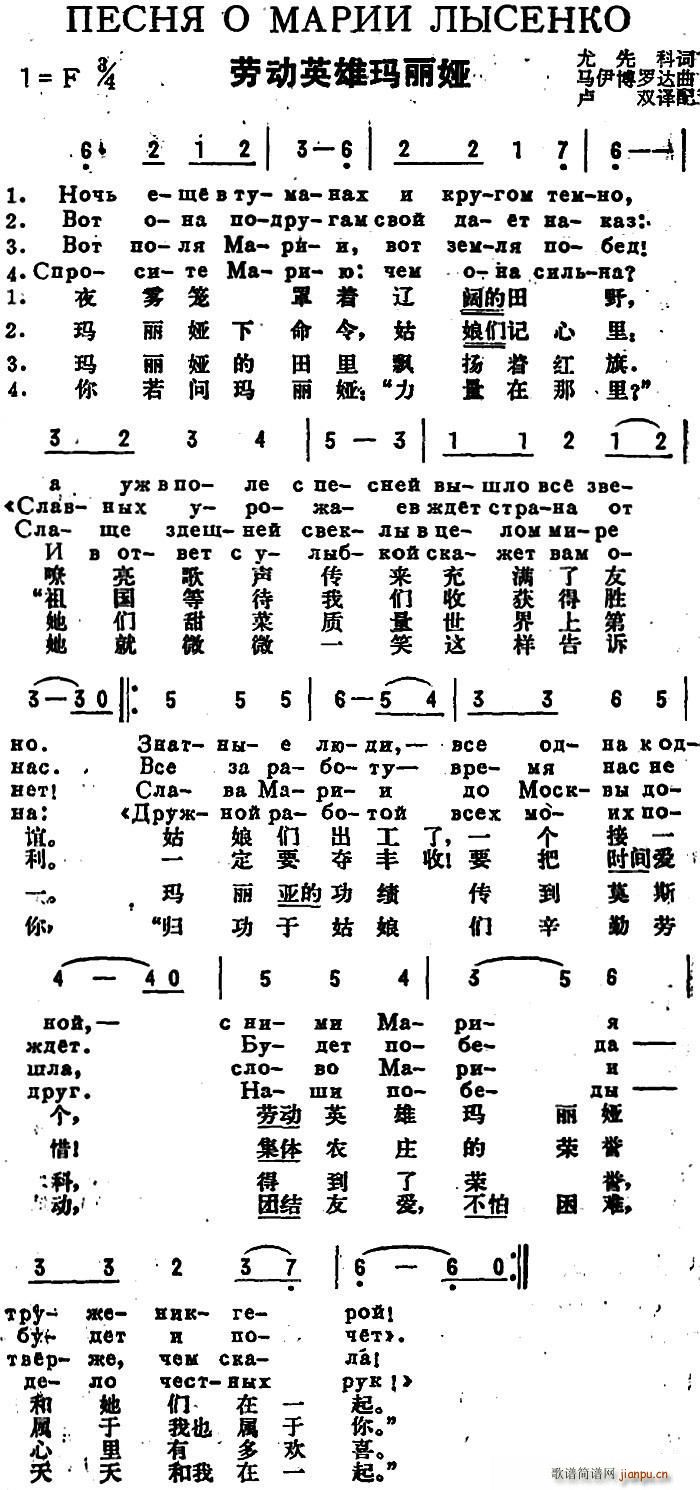 ПЕСНЯ О МАРИИ ЛЫСЕНКО
劳动英雄玛丽娅
1=F 3/4
尤先科词
马伊博罗达曲
卢双译配
6· 2 1 2 | 3—6 | 2 2 1 7 | 6—— |
1. Ночь е-щё в ту-ма-нах и кру-гом тем-но,
2. Вот о-на по-дру-гам свой да-ёт на-каз:
3. Вот по-ля Ма-ри-и, вот зем-ля по-бед!
4. Спро-си-те Ма-ри-ю: чем о-на силь-на?
1. 夜雾笼罩着辽阔的田野,
2. 玛丽娅下命令,姑娘们记心里:
3. 玛丽娅的田里飘扬着红旗.
4. 你若问玛丽娅:“力量在那里?”
3 2 3 4 | 5—3 | 1 1 2 1 2 |
а уж в по-ле с пе-сней вы-шло всё зве-
«Слав-ных у-ро-жа-ев ждёт стра-на от
Сла-ще здеш-ней свек-лы в це-лом ми-ре
И в от-вет с у-лыб-кой ска-жет вам о-
嘹亮歌声传来充满了友
“祖国等待我们收获得胜
她们甜菜质量世界上第
她就微微一笑这样告诉
3—3 0 ‖: 5 5 5 5 | 6—5 4 | 3 3 6 5 |
но. Знат-ны-е лю-ди,— все од-на к од-
нас. Все за ра-бо-ту— вре-мя нас не
нет! Сла-ва Ма-ри-и до Москвы до-
на: «Друж-ной ра-бо-той всех мо-их по-
谊。姑娘们出工了,一个接一
利。一定要夺丰收!要把时间爱
一。玛丽亚的功绩传到莫斯
你,“归功于姑娘们辛勤劳
4—4 0 | 5 5 4 | 3 5 6 |
ной,— с ни-ми Ма-ри-я
ждёт. Бу-дет по-бе-да—
шла, сло-во Ма-ри-и
друг. На-ши по-бе-ды—
个,劳动英雄玛丽娅
惜!集体农庄的荣誉
科,得到了荣誉,
动,团结友爱,不怕困难,
3 3 2 3 7 | 6—6 0 :‖
тру-же-ник-ге-рой!
бу-дет и по-чёт».
твёр-же, чем ска-ла!
де-ло чест-ных рук!»
和她们在一起。
属于我也属于你。”
心里有多欢喜。
天天和我在一起。”
歌谱简谱网
jianpu.cn